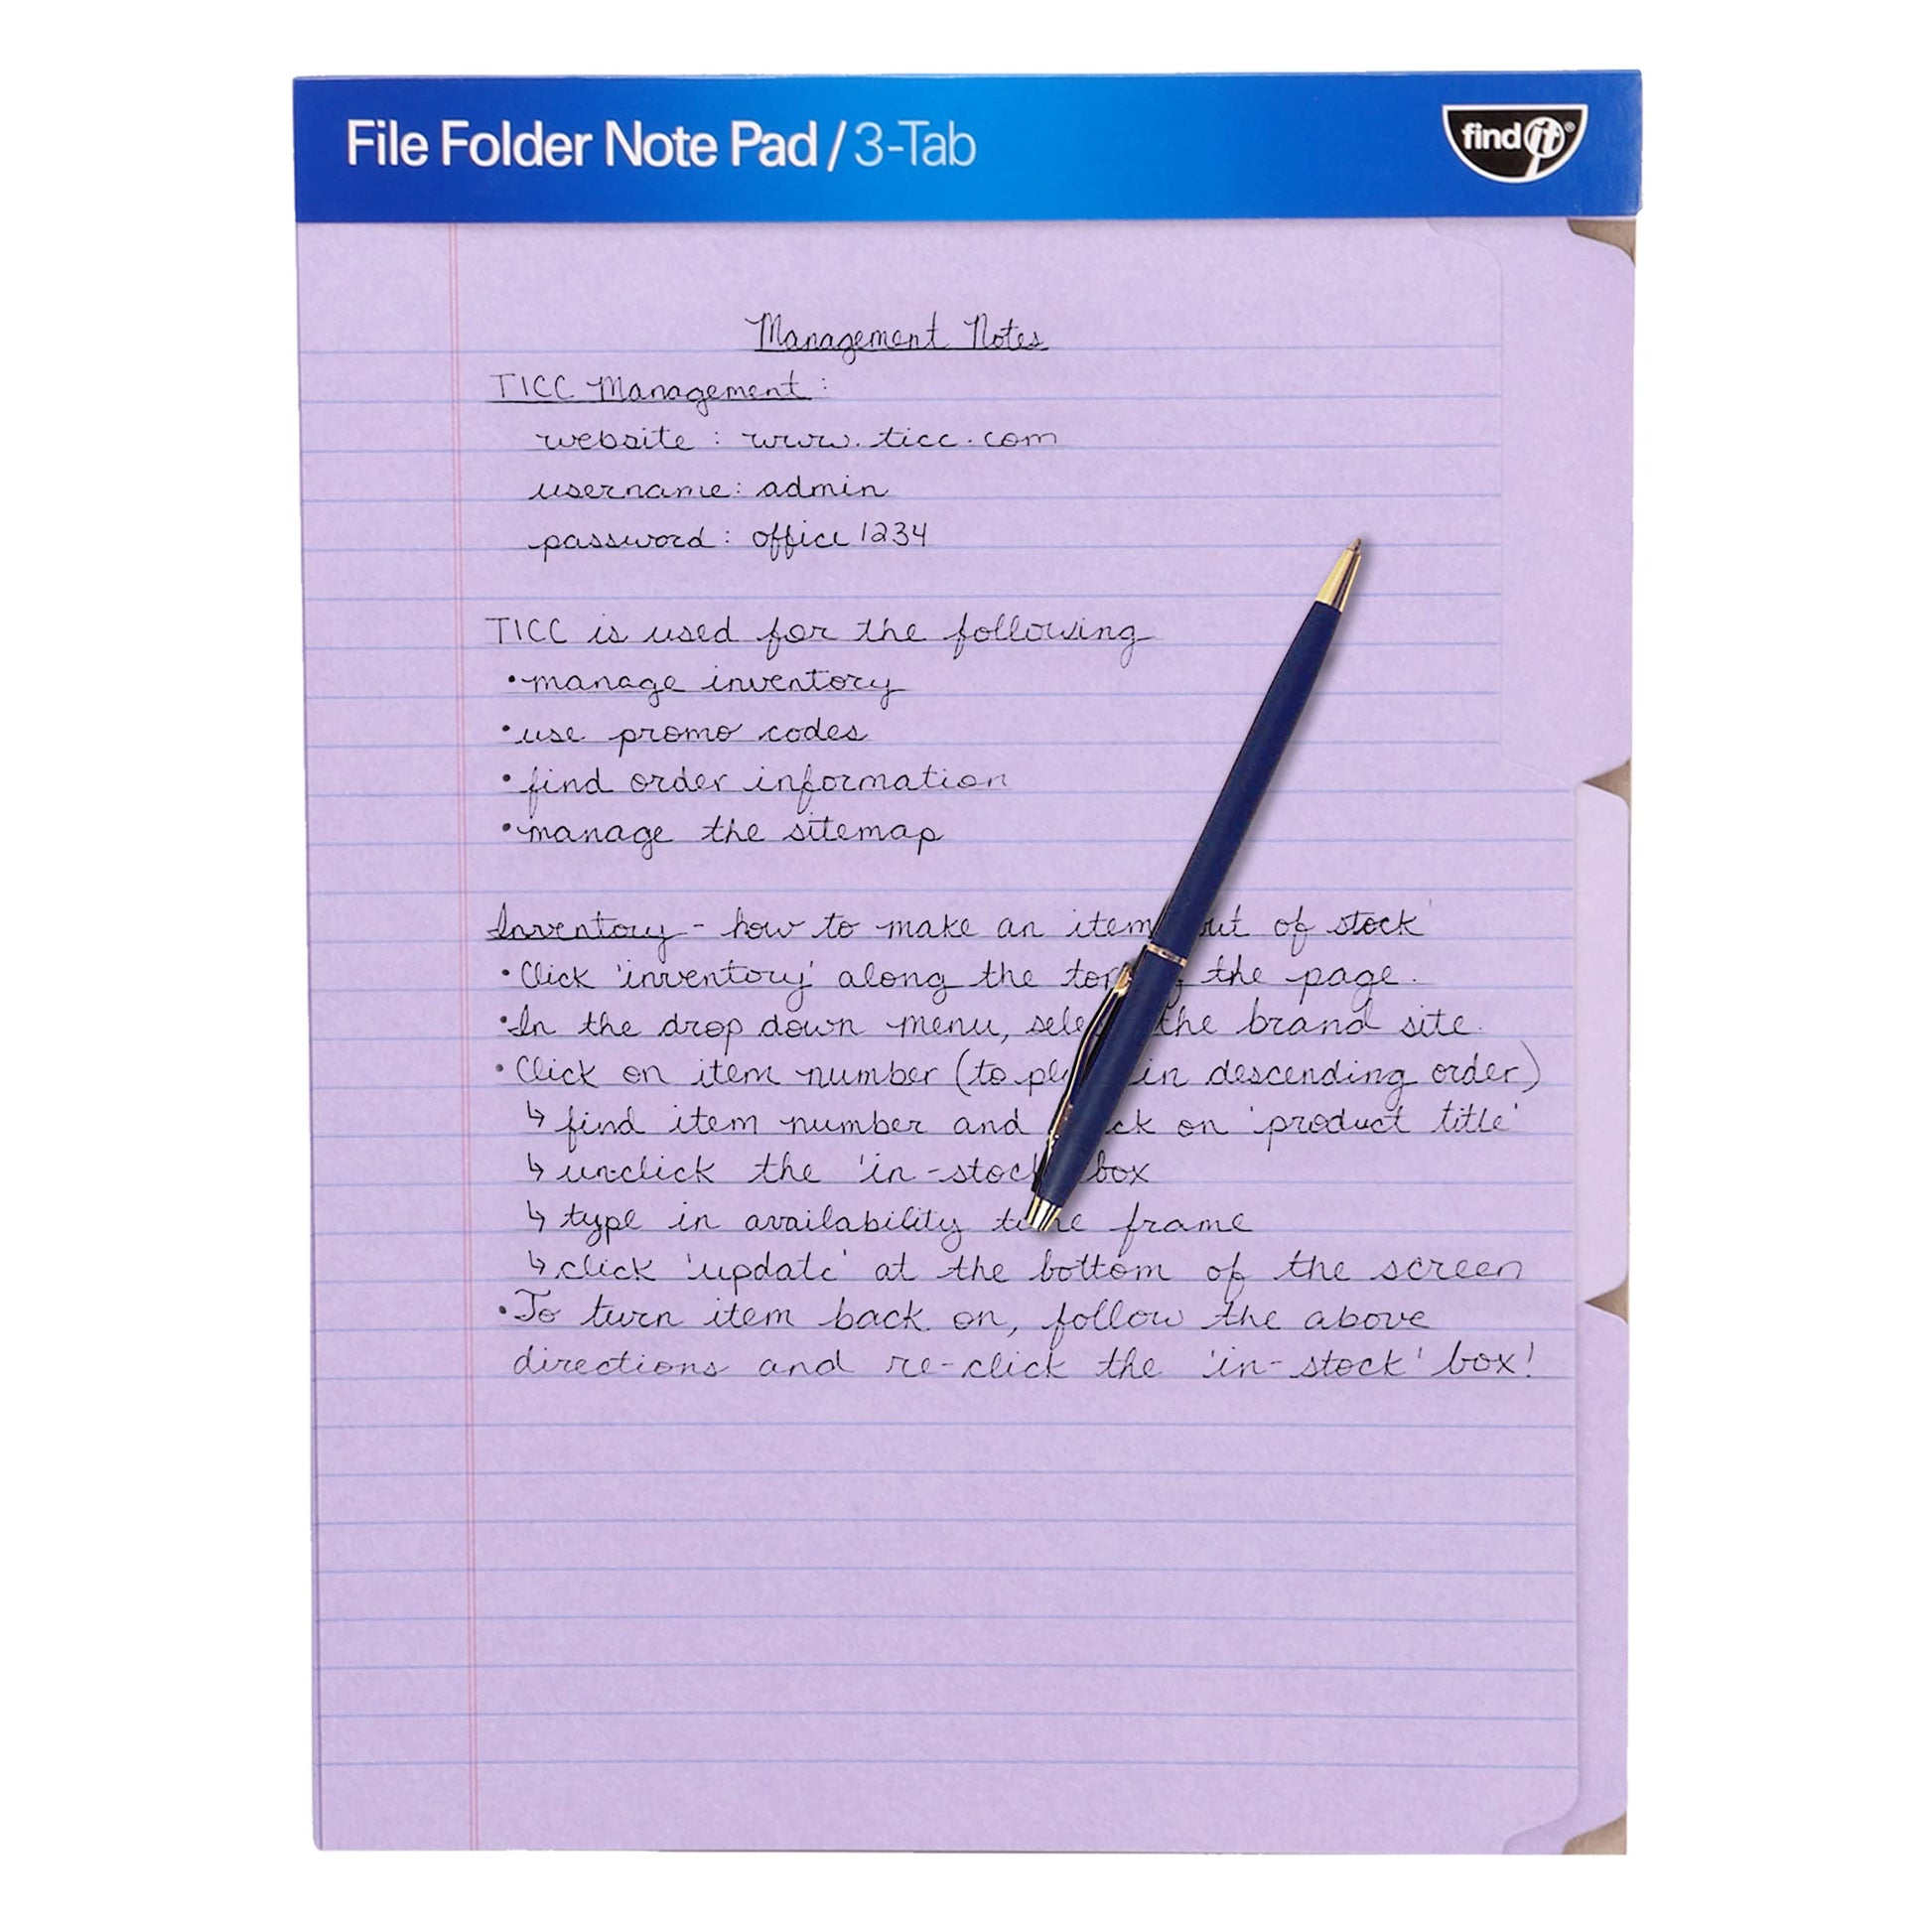 File Folder Note Pad / 3-Tab
find it®
Management Notes
TICC Management:
website: www.ticc.com
username: admin
password: office1234
TICC is used for the following
•manage inventory
•use promo codes
•find order information
•manage the sitemap
Inventory - how to make an item out of stock
•Click 'inventory' along the top the page.
•In the drop down menu, select the brand site.
•Click on item number (to in descending order)
↳ find item number and on 'product title'
↳ unclick the 'in-stock box
↳ type in availability time frame
↳ click 'update' at the bottom of the screen
•To turn item back on, follow the above
directions and re-click the 'in-stock' box!